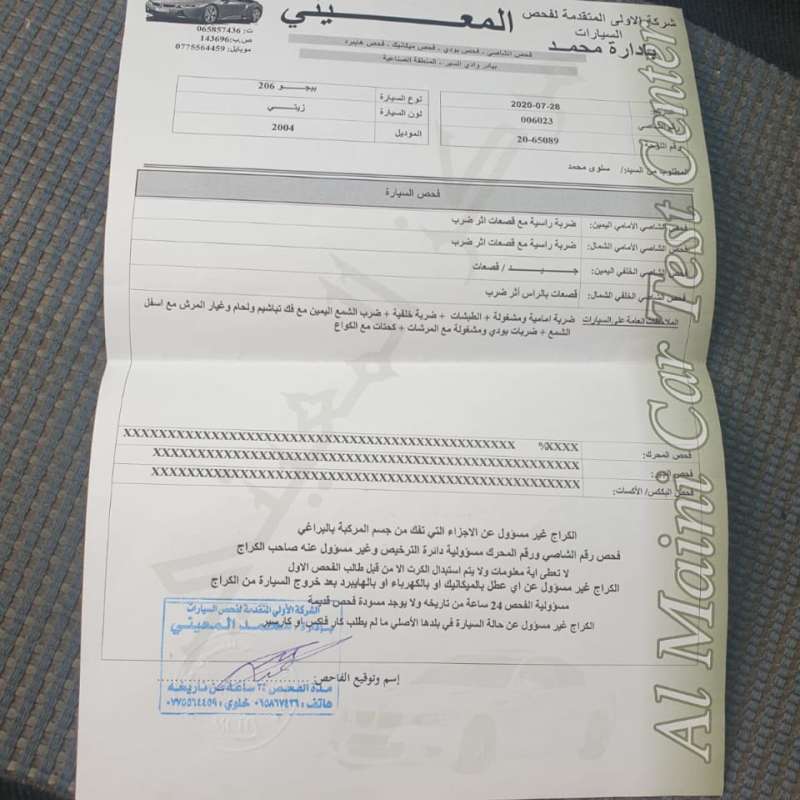 شركة الاولى المتقدمة لفحص السيارات
بإدارة محمد المعـــيني
فحص الشاصي - فحص بودي - فحص ميكانيك - فحص هايبرد
بيادر وادي السير - المنطقة الصناعية
ت: 065857436
ص.ب: 143696
موبايل: 0775564459
2020-07-28
006023
20-65089
رقم اللوحة
نوع السيارة بيجـــو 206
لون السيارة زيتـــي
الموديل 2004
المطلوب من السيد/ سلوى محمد
فحص السيارة
فحص الشاصي الأمامي اليمين: ضربة راسية مع قصعات اثر ضرب
فحص الشاصي الأمامي الشمال: ضربة راسية مع قصعات اثر ضرب
فحص الشاصي الخلفي اليمين: جـــيـــد / قصعات
فحص الشاصي الخلفي الشمال: قصعات بالراس أثر ضرب
الملاحظات العامة على السيارات ضربة امامية ومشغولة + الطبشات + ضربة خلفية + ضرب الشمع اليمين مع فك تباشيم ولحام وغيار المرش مع اسفل
الشمع + ضربات بودي ومشغولة مع المرشات + كحتات مع الكواع
فحص المحرك: %XXXX XXXXXXXXXXXXXXXXXXXXXXXXXXXXXXXXXXXXXXXXXXXX
XXXXXXXXXXXXXXXXXXXXXXXXXXXXXXXXXXXXXXXXXXXXXXXX
فحص البككس/ الأكسات: XXXXXXXXXXXXXXXXXXXXXXXXXXXXXXXXXXXXXXXXXXXXXXXX
الكراج غير مسؤول عن الاجزاء التي تفك من جسم المركبة بالبراغي
فحص رقم الشاصي ورقم المحرك مسؤولية دائرة الترخيص وغير مسؤول عنه صاحب الكراج
لا تعطى اية معلومات ولا يتم استبدال الكرت الا من قبل طالب الفحص الاول
الكراج غير مسؤول عن اي عطل بالميكانيك او بالكهرباء او بالهايبرد بعد خروج السيارة من الكراج
مسؤولية الفحص 24 ساعة من تاريخه ولا يوجد مسودة فحص قديمة
الكراج غير مسؤول عن حالة السيارة في بلدها الأصلي ما لم يطلب كار فاكس او كارسير
إسم وتوقيع الفاحص:
الشركة الأولى المتقدمة لفحص السيارات
بإدارة محمد المعيني
مدة الفحص ٢٤ ساعة من تاريخه
هاتف: ٠٦٥٨٦٧٤٣٦ خلوي: ٠٧٧٥٥٦٤٤٥٩
Al Maini Car Test Center